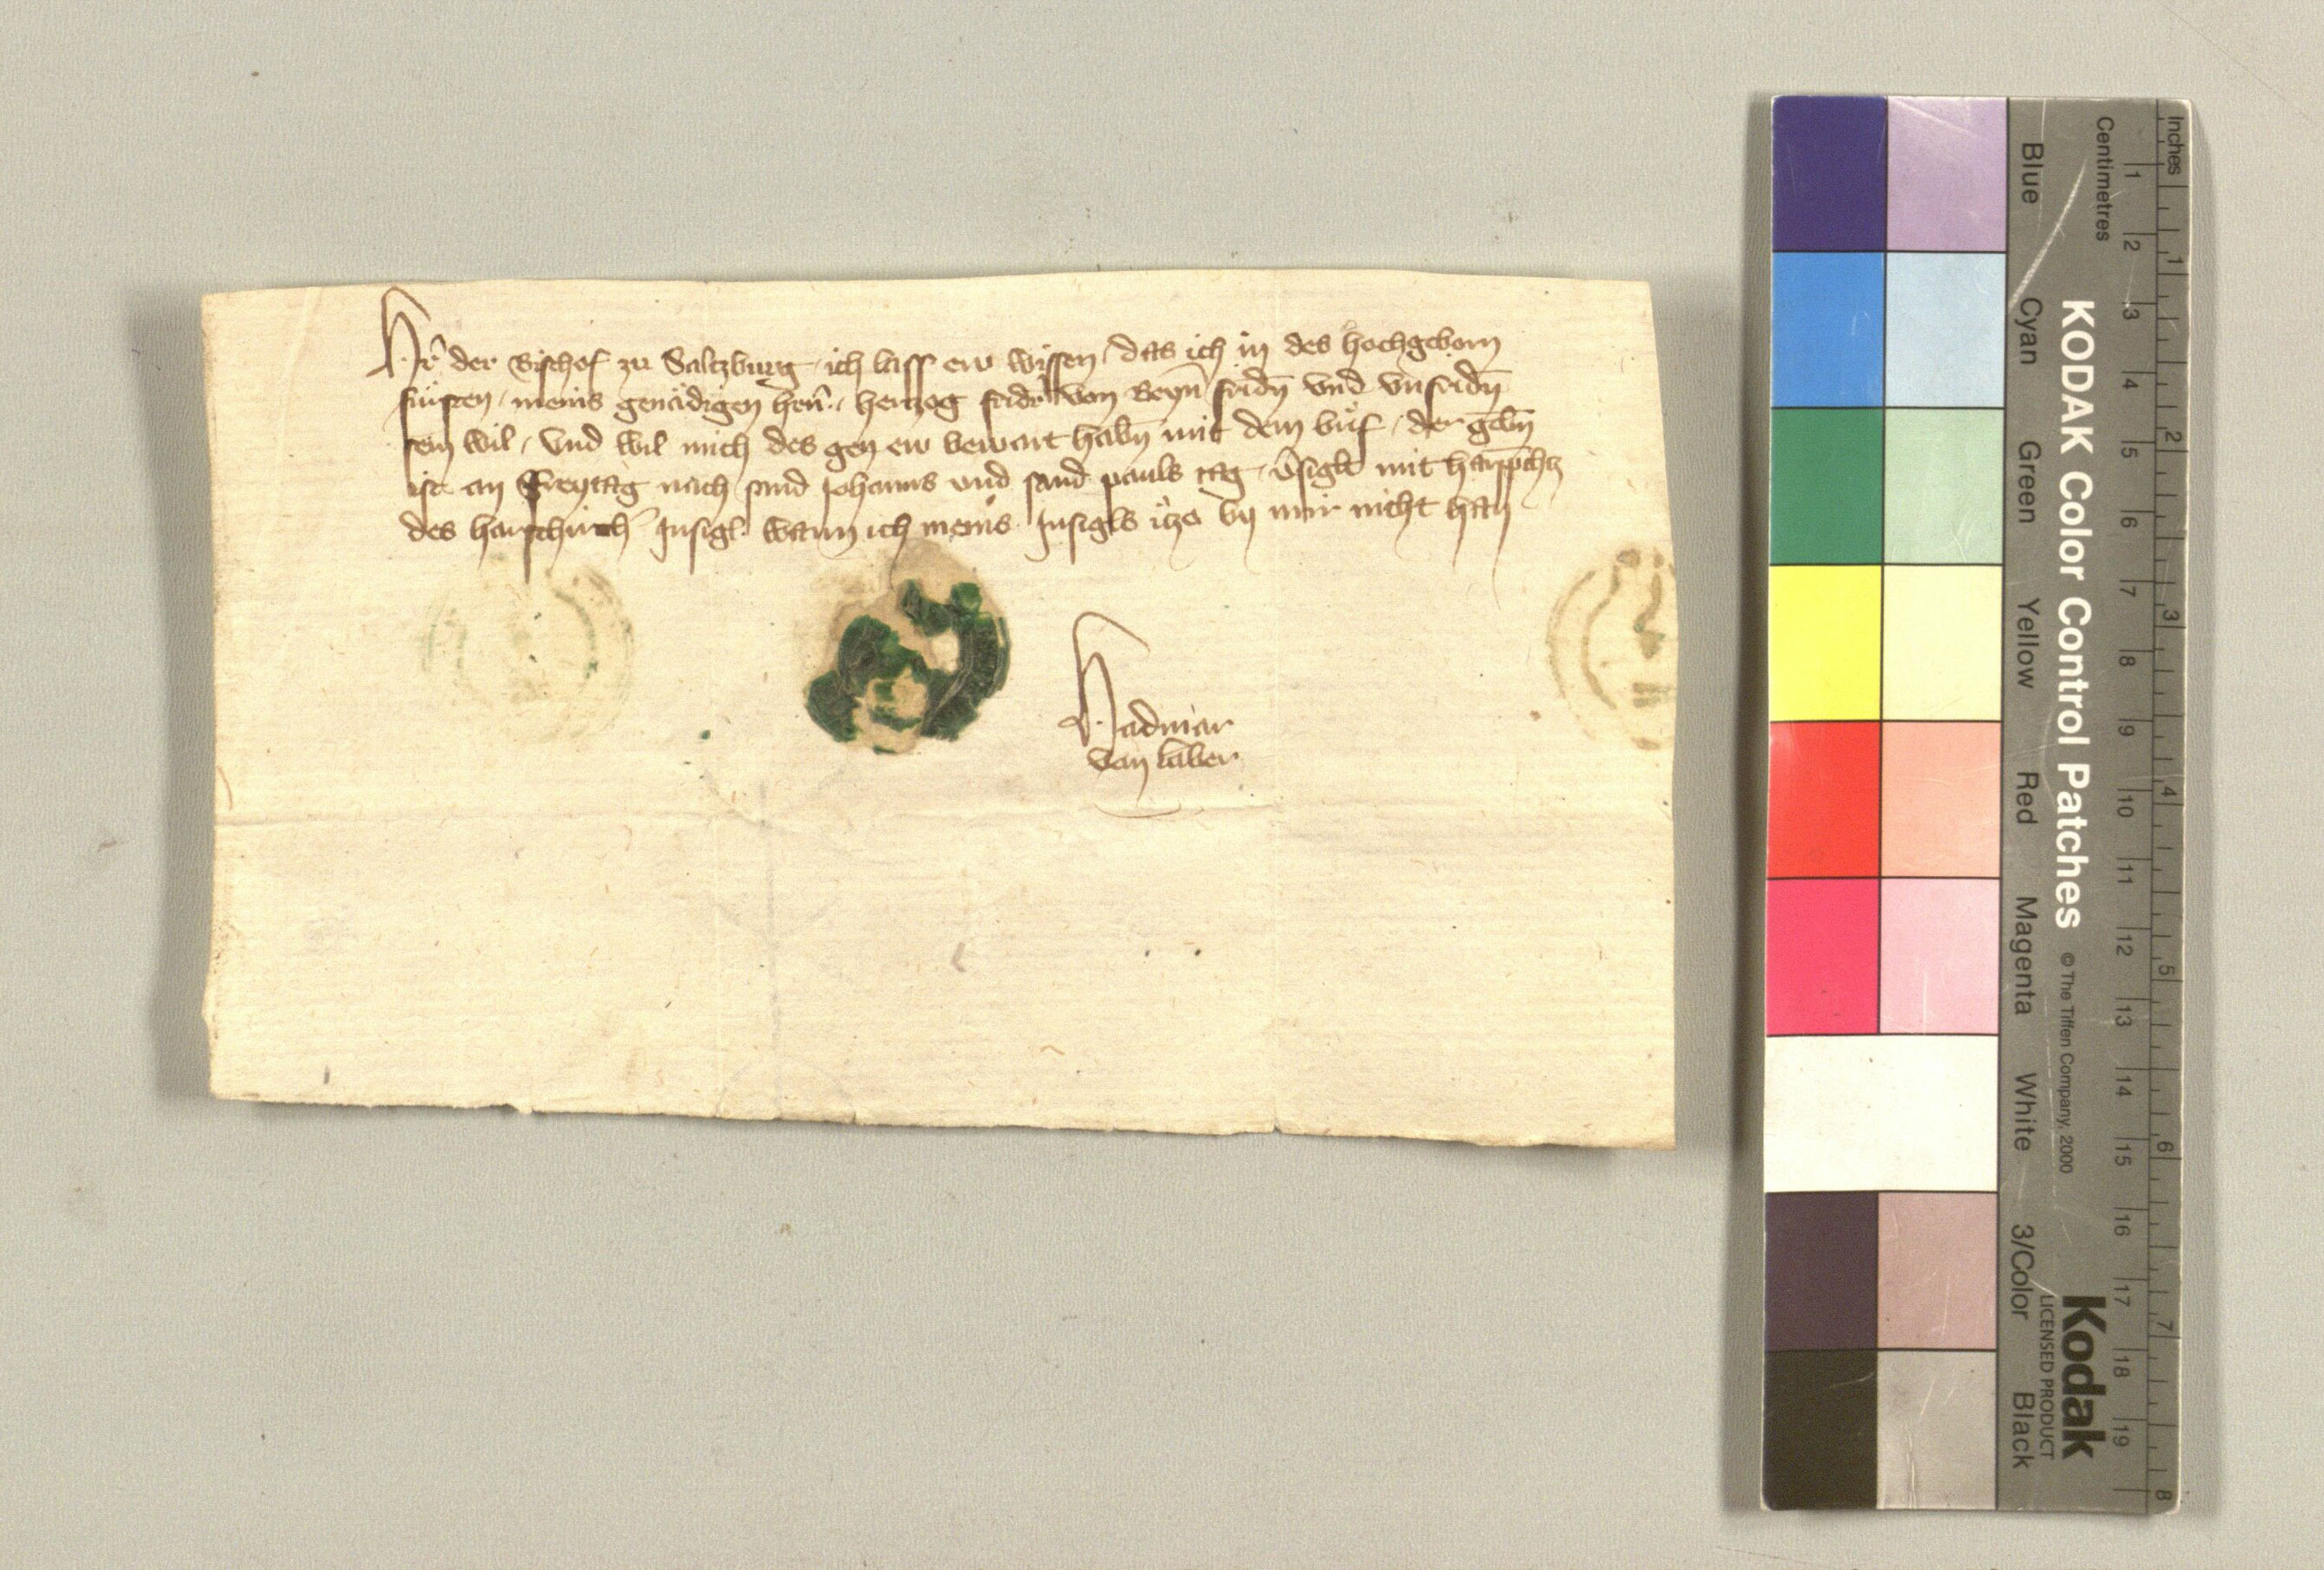 Hr̄ der Bischof zu Saltzburg ich lass ew wissen das ich in des hochgeborn
fürsten meins genädigen hrn̄ hertzog fridr̄ von Beyrn̄ fridn̄ vnd vnfridn̄
sein wil / vnd wil mich des gen ew bewart habn̄ mit dem brif / der gebn̄
ist an Freytag nach sand Johanns vnd sand pauls tag v̄siglt mit
des harschirch̄ Insigl wann ich meins Insigls itzo by mir nicht han
Hadmar
von laber
Inches
Centimetres
1 2 3 4 5 6 7 8 9 10 11 12 13 14 15 16 17 18 19
1 2 3 4 5 6 7 8
KODAK Color Control Patches © The Tiffen Company, 2000
Kodak
LICENSED PRODUCT
Blue Cyan Green Yellow Red Magenta White 3/Color Black